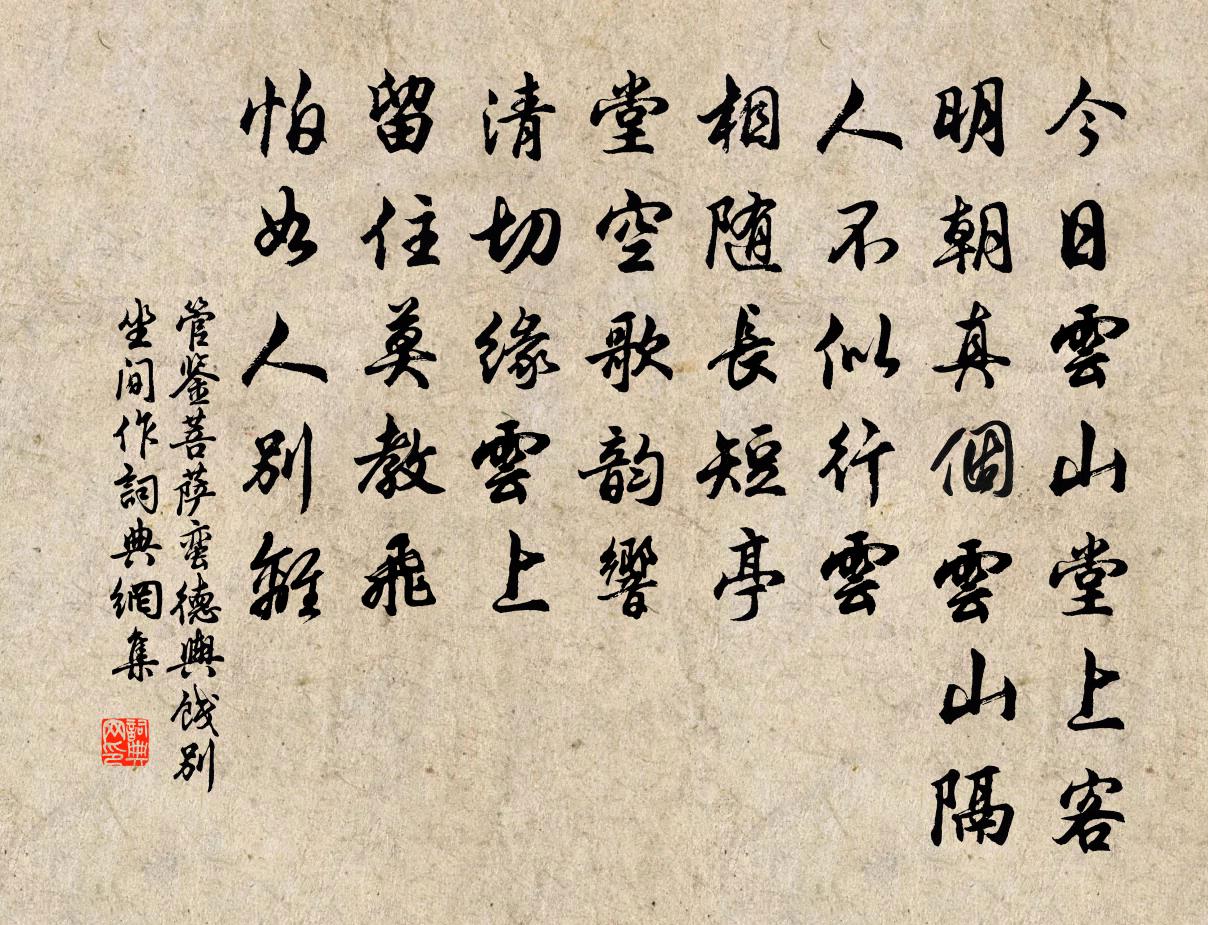 今日雲山堂上客
明朝真個雲山隔
人不似行雲
相随長短亭
堂空歌韵響
清切緣雲上
留住莫教飛
怕如人別離
管鉴菩萨蛮德輿餞別
坐间作詞典網集
詞典